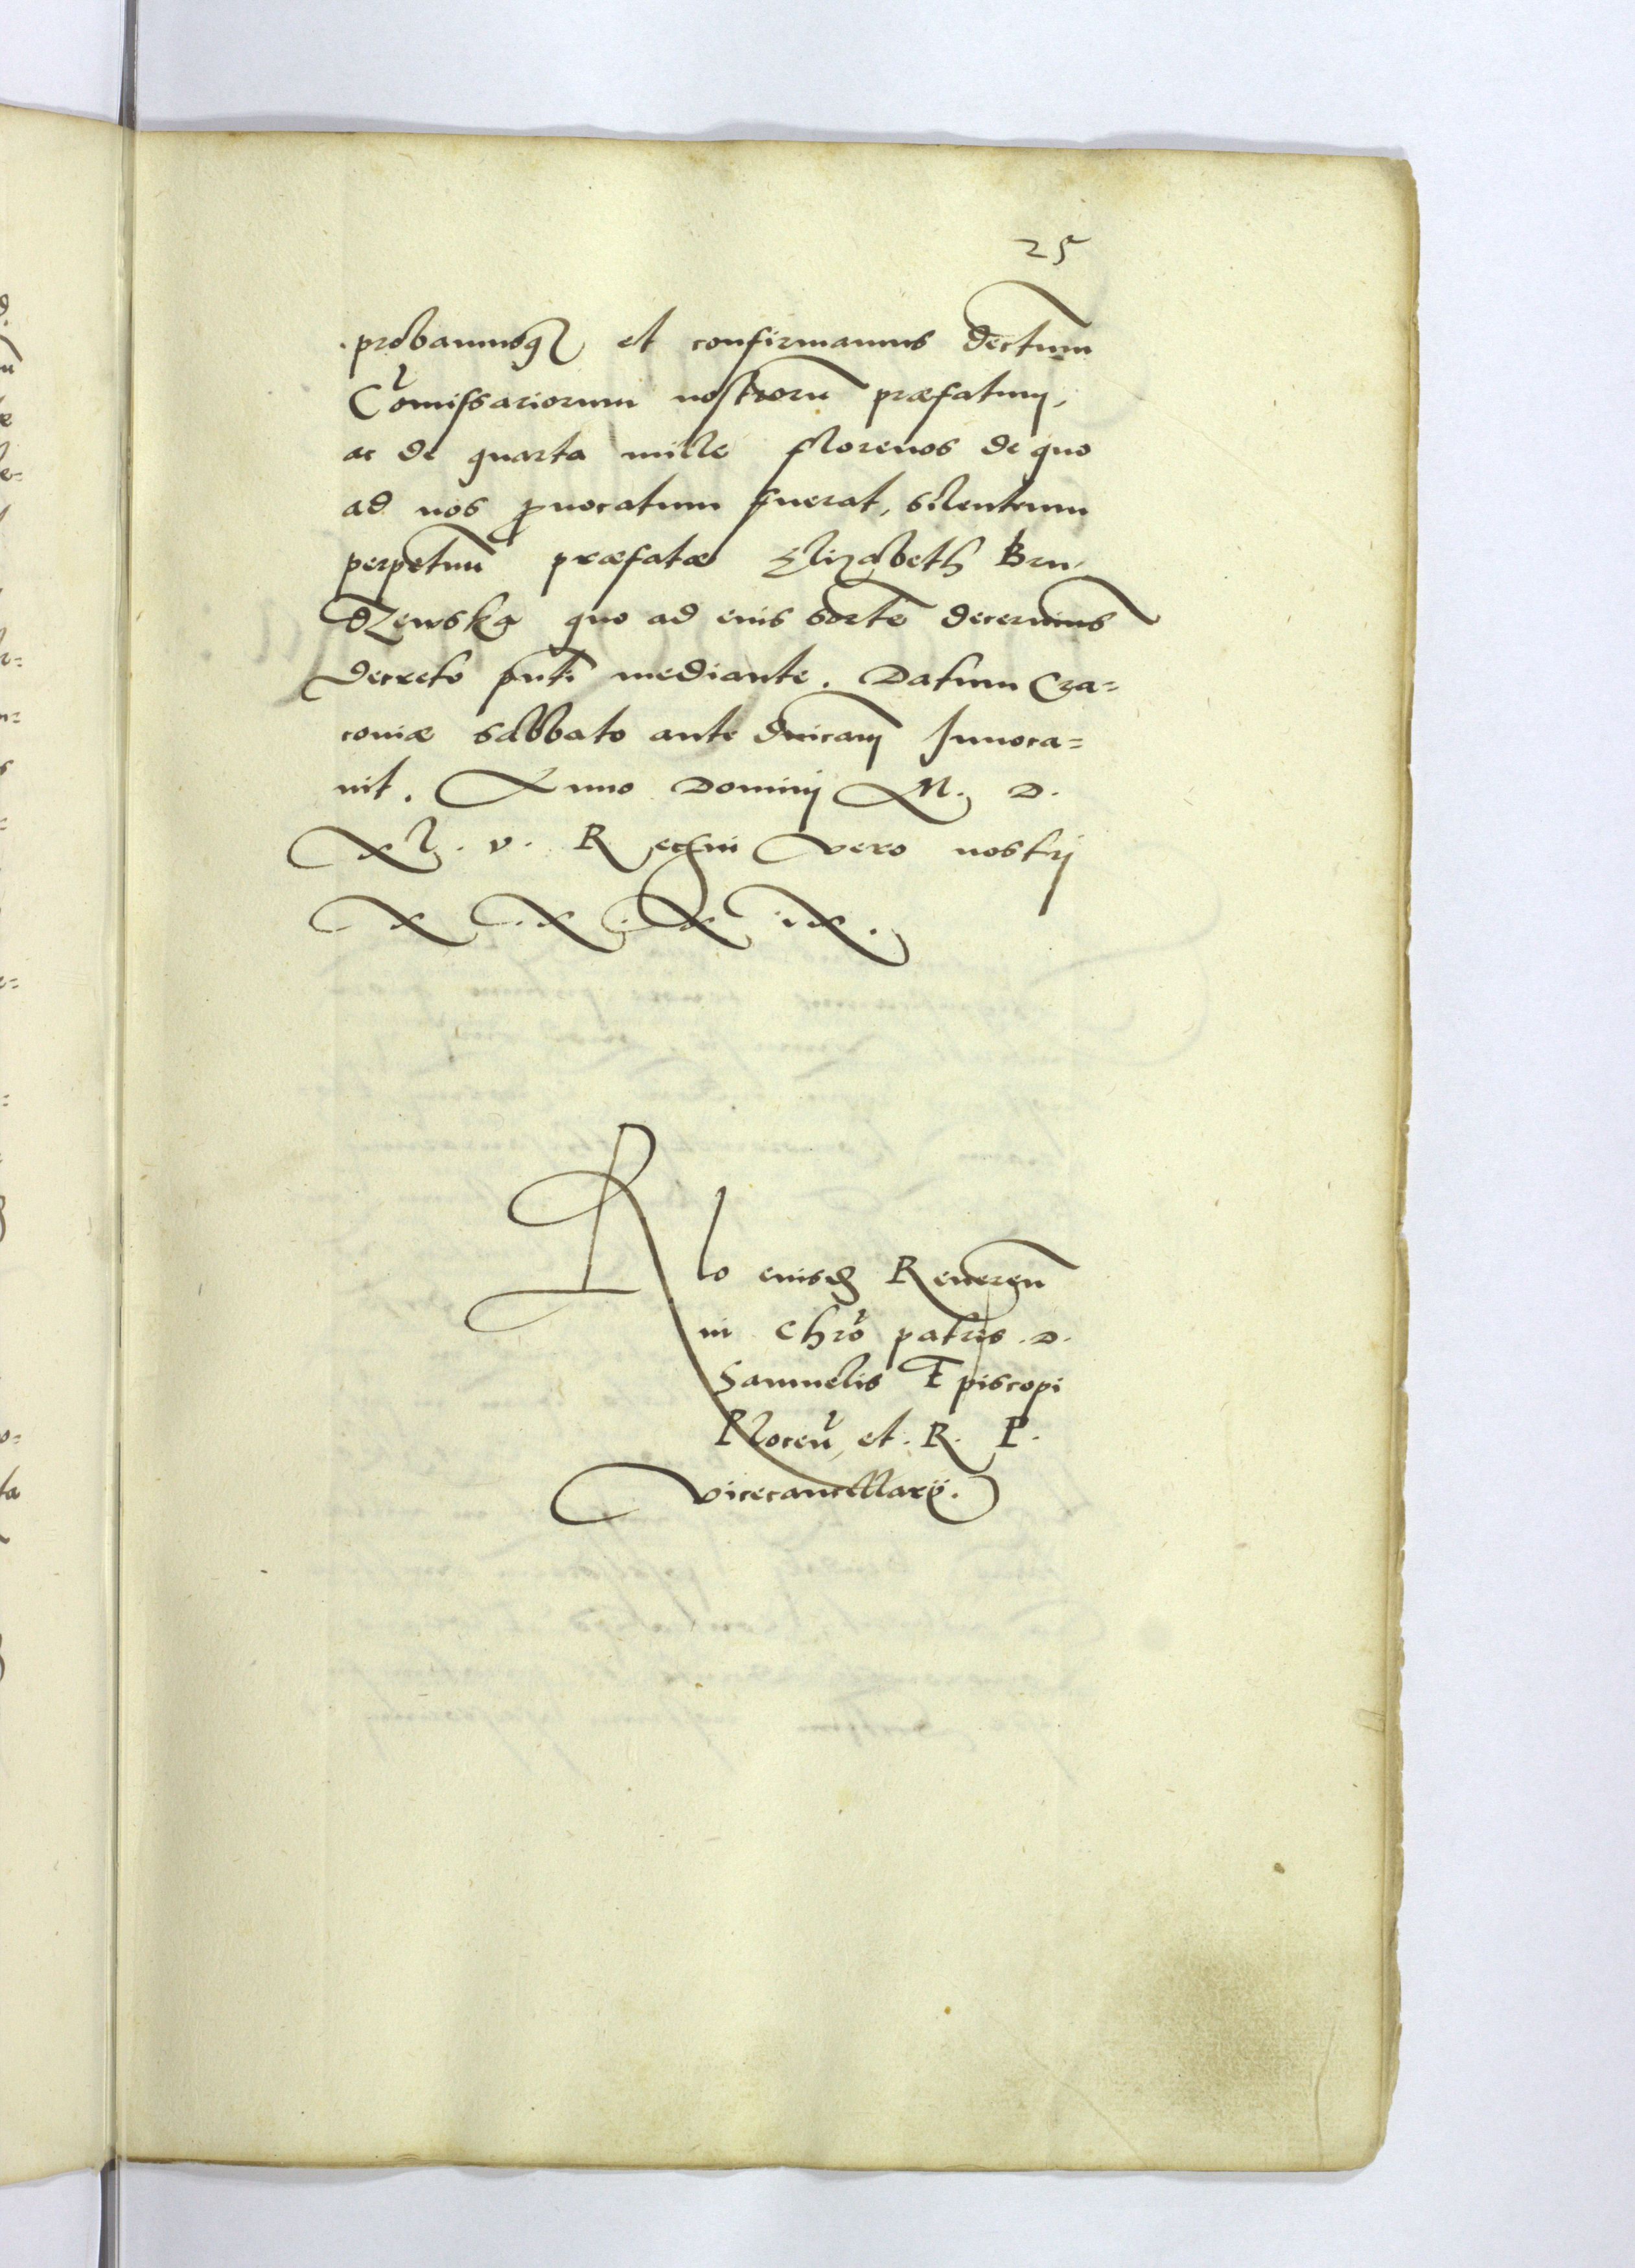 25
probamusq3 et confirmamus dectum
Comissariorum nostroru praefatum,
ac de quarta mille florenos de quo
ad nos provocatum fuerat, silentium
perpetuu praefatae Elizabeth Bru,
dzewska quo ad eius sorte decernimus
decreto pnti mediante. Datum Cra=
coviae sabbato ante dnicam Invoca=
vit. Anno Domini M. D.
xl. v. Regni vero nostri
x. x. x. ix.
Rlo eiusd Reveren
in Chro patris .D.
Samuelis Episcopi
Plocen, et. R. P.
vicecancellarij.